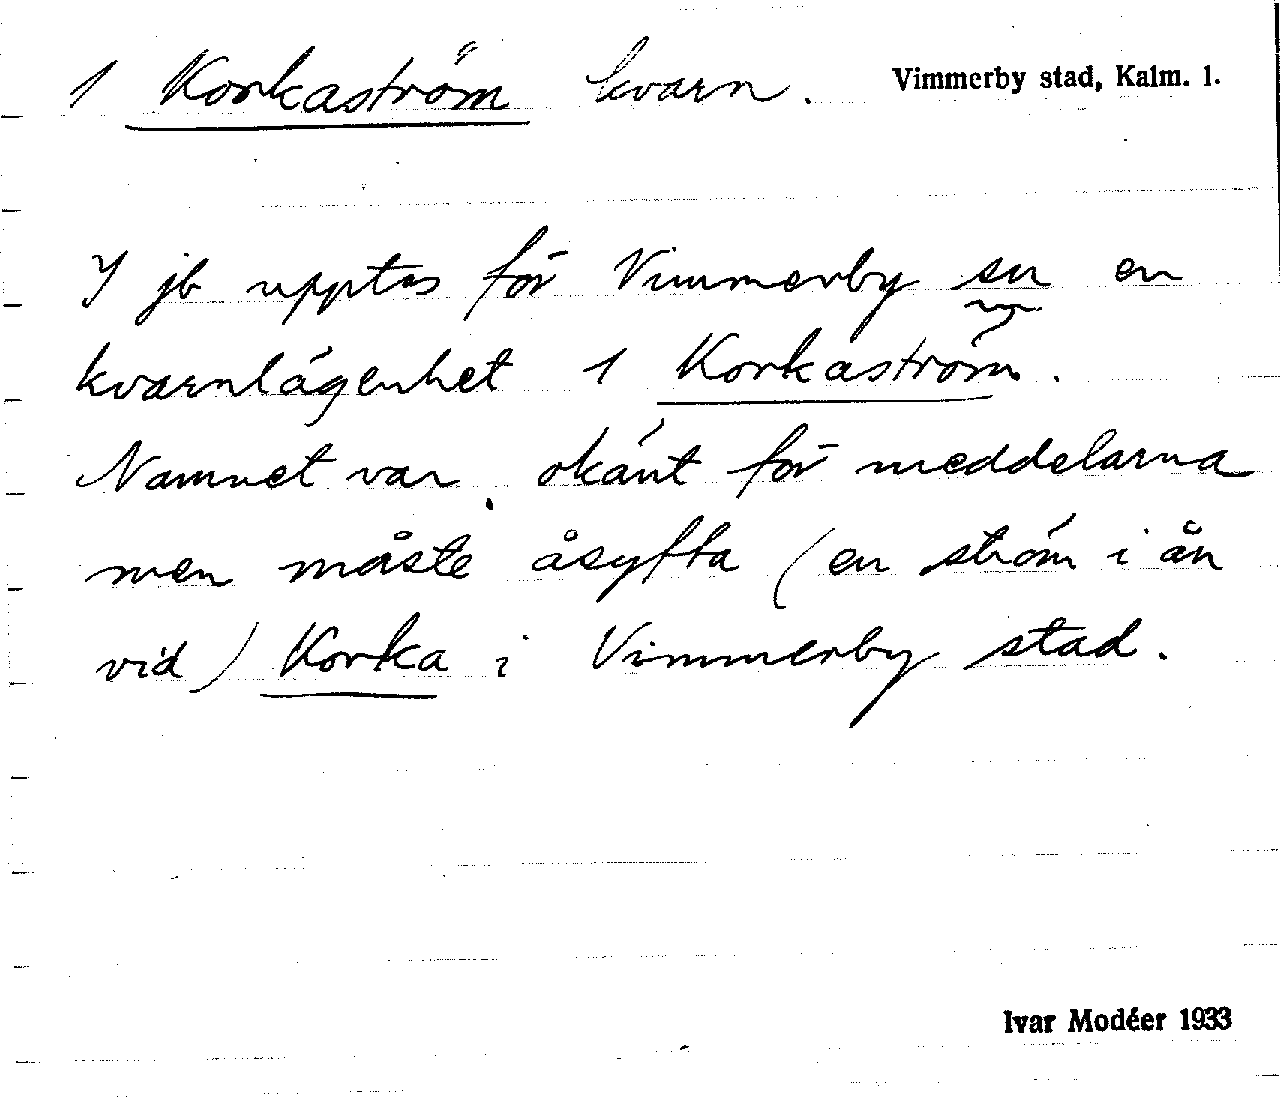 1 Korkaström kvarn. Vimmerby stad, Kalm. l.
I jb upptas för Vimmerby sn en
kvarnlägenhet 1 Korkaström.
Namnet var okänt för meddelarna
men måste åsyfta (en ström i ån
vid) Korka i Vimmerby stad.
Ivar Modéer 1933